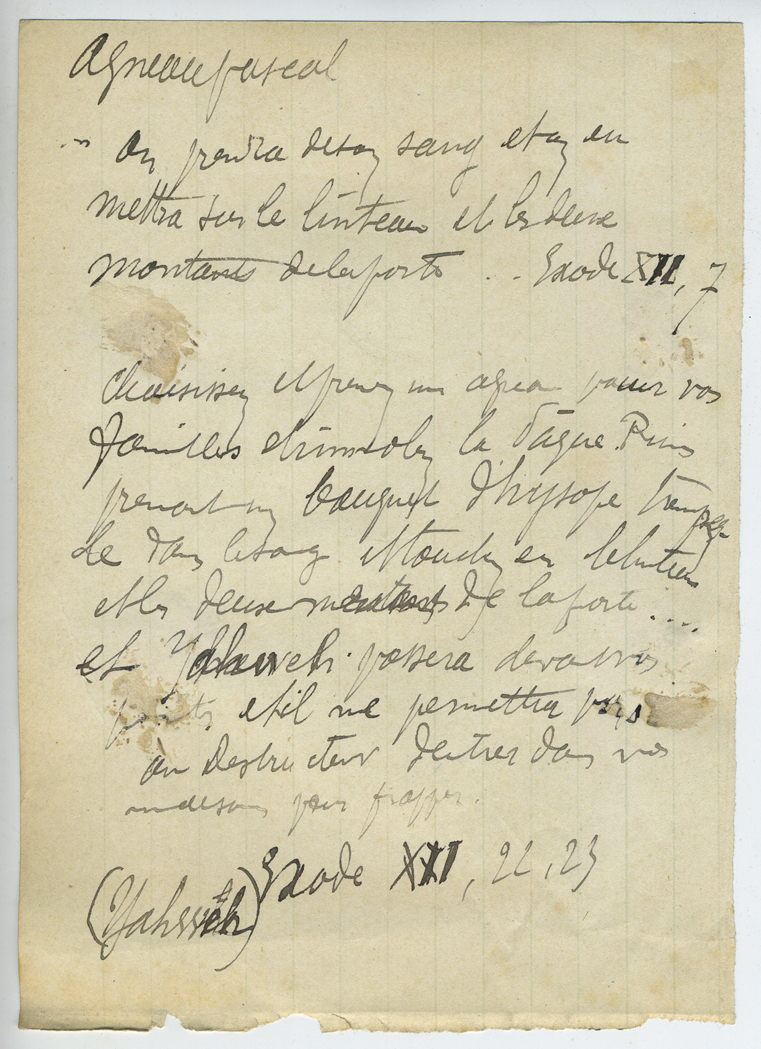 Agneau pascal
" On prendra de son sang et on en
mettra sur le linteau et les deux
montants de la porte... Exode XII, 7
Choisissez et prenez un agneau pour vos
familles et immolez la Pâque. Puis
prenant un bouquet d'hysope trempez
le dans le sang et touchez en le linteau
et les deux montants de la porte....
et Yahweh passera devant vos
portes et il ne permettra pas
au Destructeur d'entrer dans vos
maisons pour frapper.
Exode XII, 22, 23
(Yahweh)